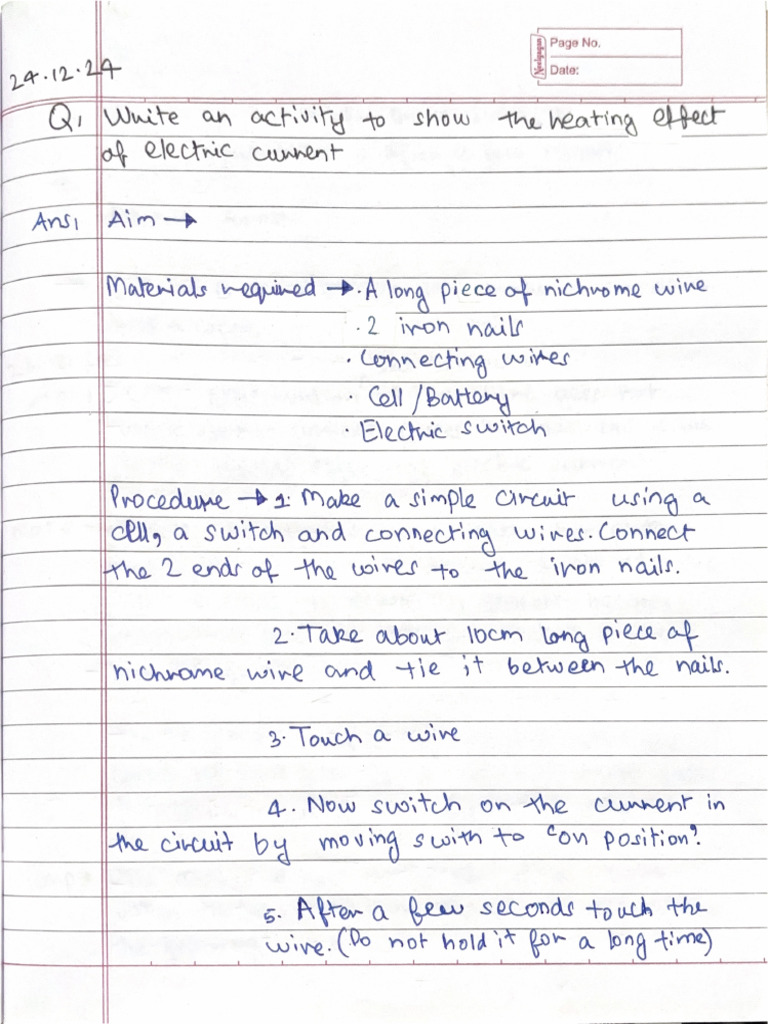 24.12.24
Navlgagan
Page No.
Date:
Q1 Write an activity to show the heating effect
of electric current
Ans1 Aim →
Materials required → · A long piece of nichrome wire
· 2 iron nails
· Connecting wires
· Cell/Battery
Electric switch
Procedure → 1. Make a simple circuit using a
cell, a switch and connecting wires. Connect
the 2 ends of the wires to the iron nails.
2. Take about 10cm long piece of
nichrome wire and tie it between the nails.
3. Touch a wire
4. Now switch on the current in
the circuit by moving swith to "on position".
5. After a few seconds touch the
wire. (Do not hold it for a long time)